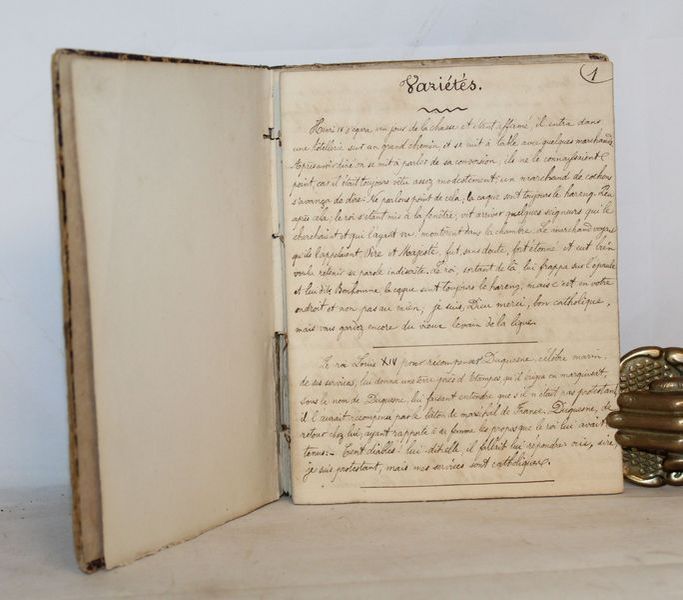 Variétés.
1
Henri IV s'égara un jour de la chasse et étant affamé, il entra dans
une hôtellerie sur un grand chemin, et se mit à table avec quelques marchands.
Après avoir dîné on se mit à parler de sa conversion; ils ne le connaissaient
point, car il était toujours vêtu assez modestement; un marchand de cochons
s'avança de dire: Ne parlons point de cela; la caque sent toujours le hareng. Peu
après cela; le roi s'étant mis à la fenêtre; vit arriver quelques seigneurs qui le
cherchaient et qui l'ayant vu, montèrent dans la chambre. Le marchand voyant
qu'ils l'appelaient, Sire et Majesté, fut sans doute, fort étonné et eut bien
voulu retenir sa parole indiscrète. Le roi, sortant de là lui frappa sur l'épaule
et lui dit: Bonhomme, la caque sent toujours le hareng, mais c'est en votre
endroit et non pas au mien; je suis, Dieu merci, bon catholique,
mais vous gardez encore du vieux levain de la ligue.
Le roi Louis XIV pour récompenser Duquesne, célèbre marin,
de ses services, lui donna une terre près d'Etampes, qu'il érigea en marquisat,
sous le nom de Duquesne, lui faisant entendre que s'il n'était pas protestant
il l'aurait récompensé par le bâton de maréchal de France. Duquesne, de
retour chez lui, ayant rapporté à sa femme les propos que le roi lui avait
tenus: - Cent diables! lui dit-elle, il fallait lui répondre oui, sire,
je suis protestant, mais mes services sont catholiques.